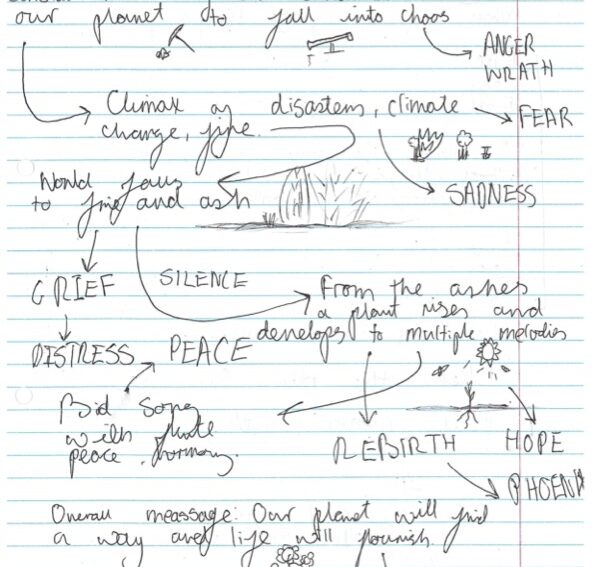 our planet to fall into chaos
ANGER
WRATH
Climax as disasters, climate
change, fire.
FEAR
World falls
to fire and ash
SADNESS
GRIEF
SILENCE
From the ashes
a plant rises and
develops to multiple melodies
DISTRESS
PEACE
Bid song
with flute
peace, harmony.
REBIRTH
HOPE
PHOENIX
Overall meassage: Our planet will find
a way and life will flourish.